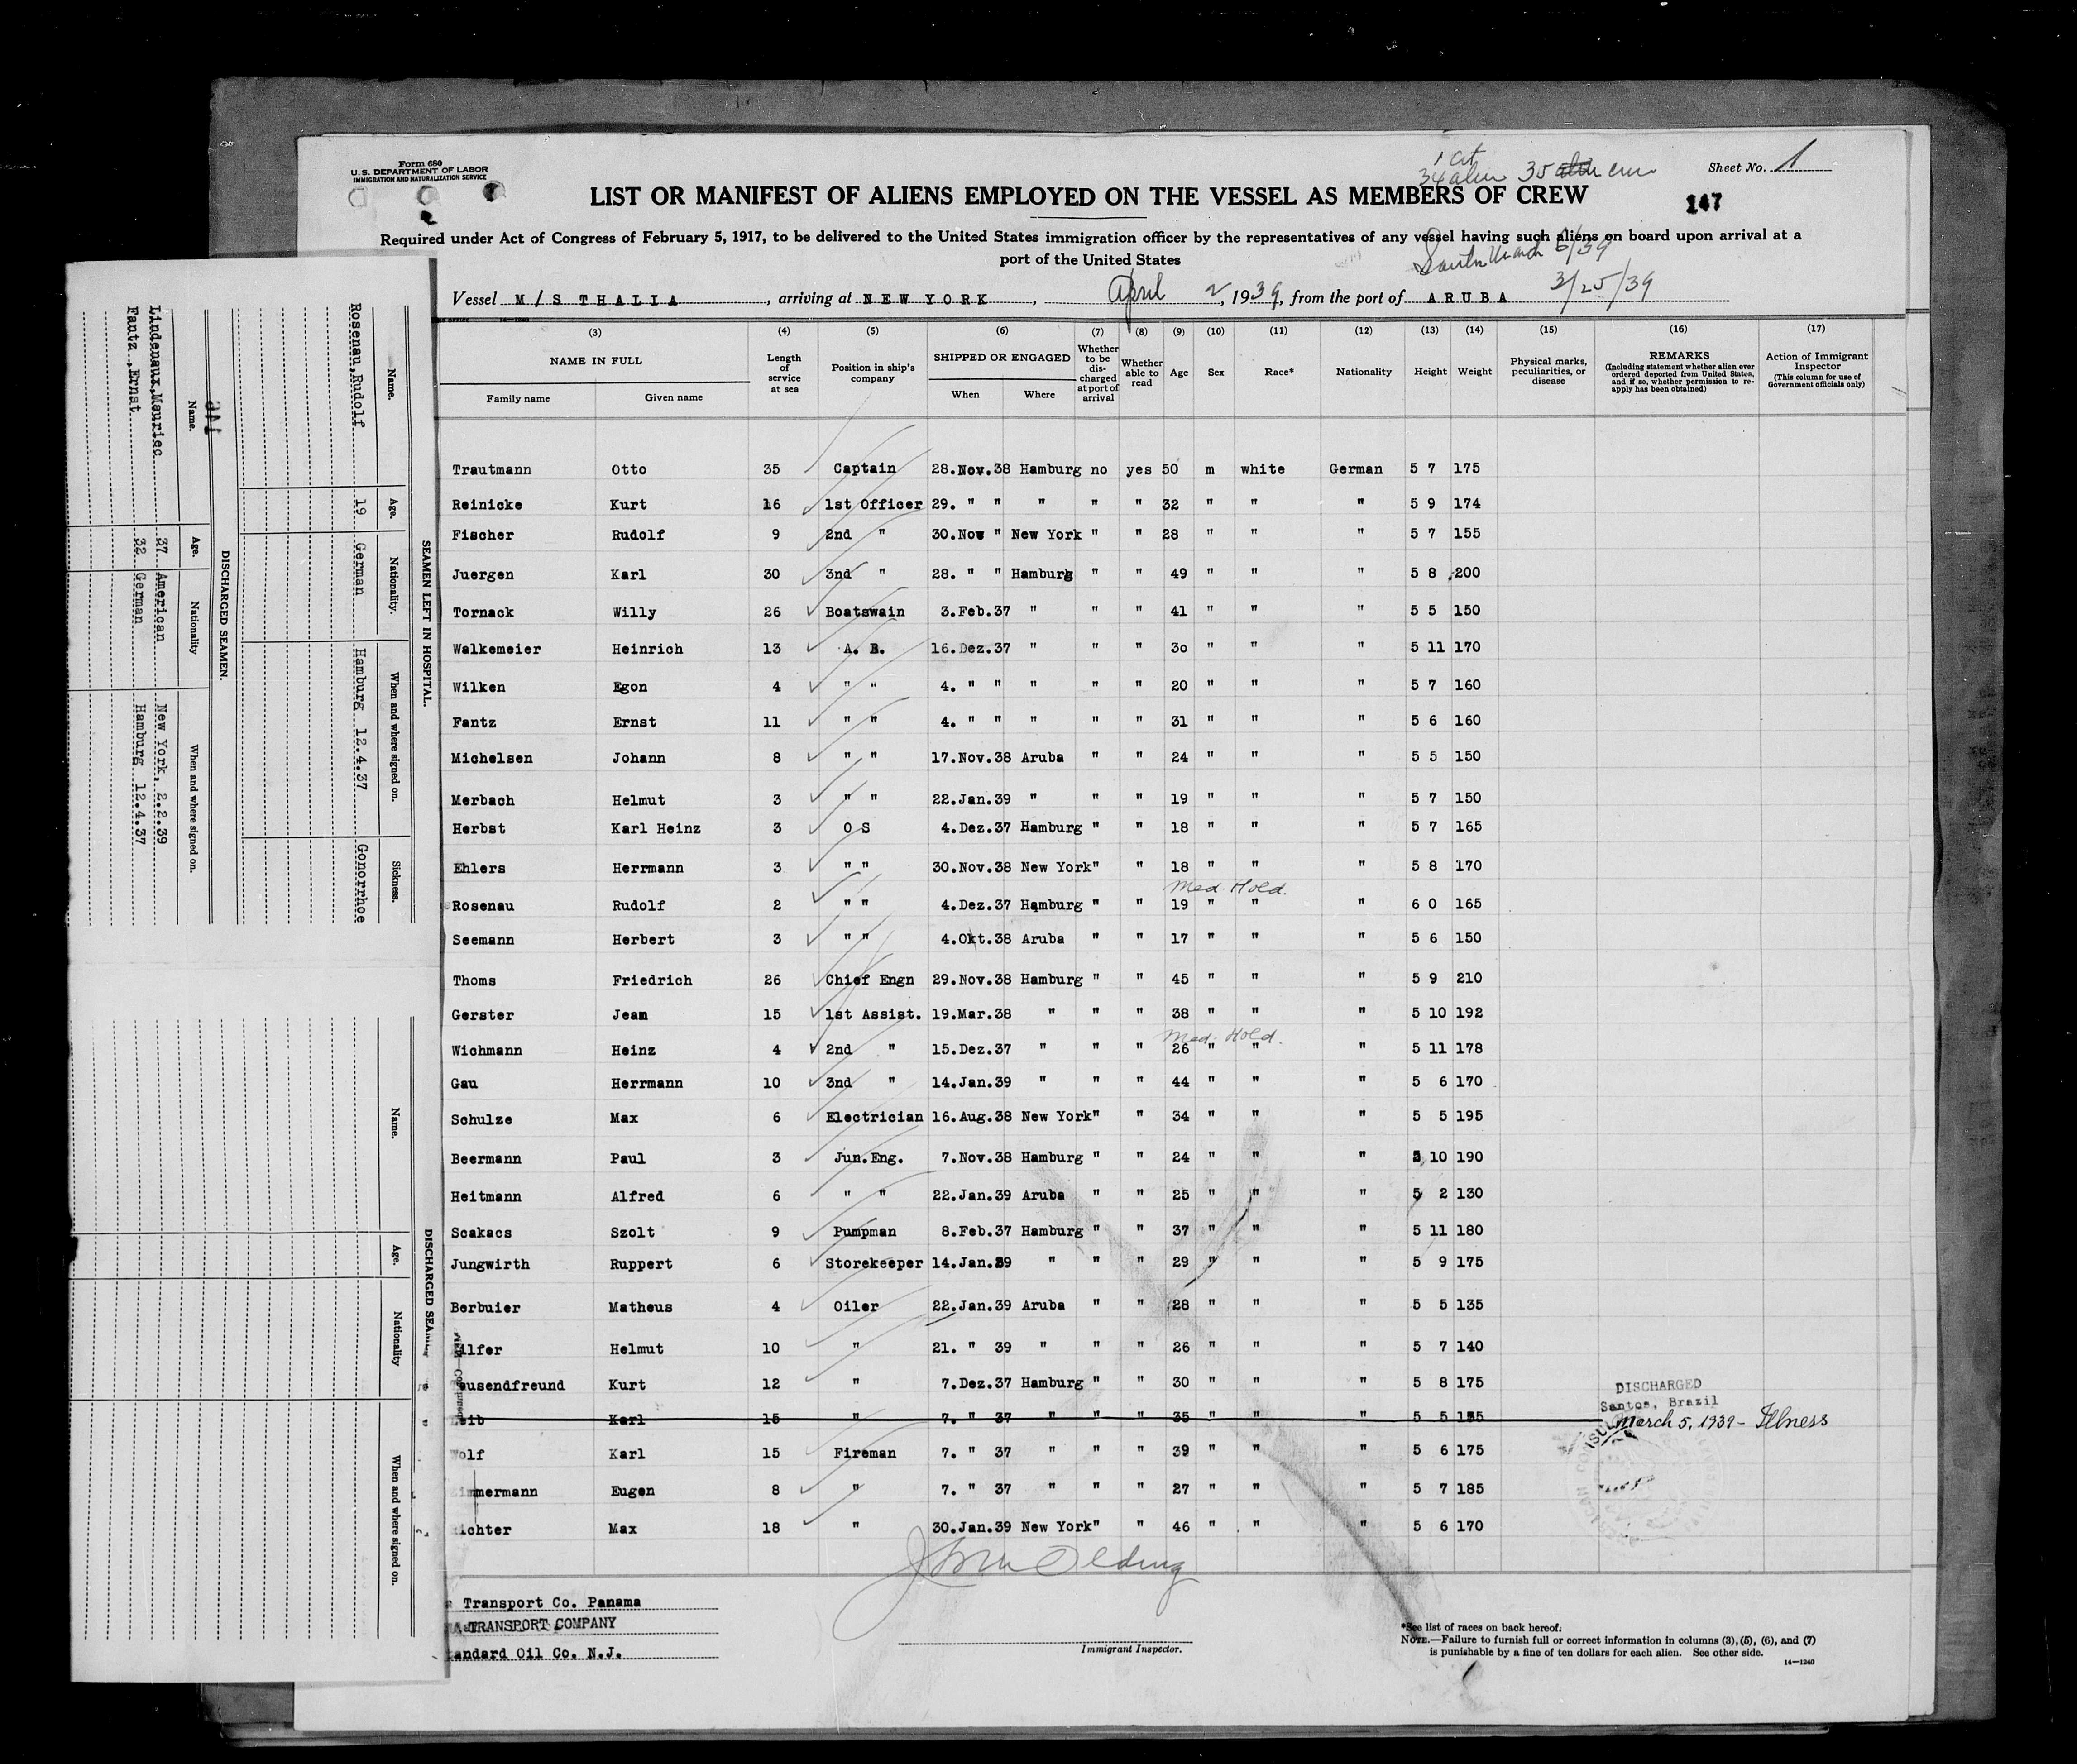 Form 680
U.S. DEPARTMENT OF LABOR
IMMIGRATION AND NATURALIZATION SERVICE
1 Cit
34 alien 35 crew
Sheet No. 1
LIST OR MANIFEST OF ALIENS EMPLOYED ON THE VESSEL AS MEMBERS OF CREW
147
Required under Act of Congress of February 5, 1917, to be delivered to the United States immigration officer by the representatives of any vessel having such aliens on board upon arrival at a
port of the United States
Santos March 6/39
Vessel M/S THALIA, arriving at NEW YORK, April 2, 1939, from the port of ARUBA 3/25/39
(3) (4) (5) (6) (7) (8) (9) (10) (11) (12) (13) (14) (15) (16) (17)
NAME IN FULL
Family name Given name
Length of service at sea
Position in ship's company
SHIPPED OR ENGAGED
When Where
Whether to be discharged at port of arrival
Whether able to read
Age
Sex
Race*
Nationality
Height
Weight
Physical marks, peculiarities, or disease
REMARKS
(Including statement whether alien ever ordered deported from United States, and if so, whether permission to reapply has been obtained)
Action of Immigrant Inspector
(This column for use of Government officials only)
Trautmann Otto 35 Captain 28.Nov.38 Hamburg no yes 50 m white German 5 7 175
Reinicke Kurt 16 1st Officer 29. " " " " " 32 " " " 5 9 174
Fischer Rudolf 9 2nd " 30.Nov " New York " " 28 " " " 5 7 155
Juergen Karl 30 3nd " 28. " " Hamburg " " 49 " " " 5 8 200
Tornack Willy 26 Boatswain 3.Feb.37 " " " 41 " " " 5 5 150
Walkemeier Heinrich 13 A. B. 16.Dez.37 " " " 3o " " " 5 11 170
Wilken Egon 4 " " 4. " " " " " 20 " " " 5 7 160
Fantz Ernst 11 " " 4. " " " " " 31 " " " 5 6 160
Michelsen Johann 8 " " 17.Nov.38 Aruba " " 24 " " " 5 5 150
Merbach Helmut 3 " " 22.Jan.39 " " " 19 " " " 5 7 150
Herbst Karl Heinz 3 O S 4.Dez.37 Hamburg " " 18 " " " 5 7 165
Ehlers Herrmann 3 " " 30.Nov.38 New York " " 18 " " " 5 8 170
Med. Hold.
Rosenau Rudolf 2 " " 4.Dez.37 Hamburg " " 19 " " " 6 0 165
Seemann Herbert 3 " " 4.Okt.38 Aruba " " 17 " " " 5 6 150
Thoms Friedrich 26 Chief Engn 29.Nov.38 Hamburg " " 45 " " " 5 9 210
Gerster Jean 15 1st Assist. 19.Mar.38 " " " 38 " " " 5 10 192
Med. Hold.
Wichmann Heinz 4 2nd " 15.Dez.37 " " " 26 " " " 5 11 178
Gau Herrmann 10 3nd " 14.Jan.39 " " " 44 " " " 5 6 170
Schulze Max 6 Electrician 16.Aug.38 New York " " 34 " " " 5 5 195
Beermann Paul 3 Jun.Eng. 7.Nov.38 Hamburg " " 24 " " " 5 10 190
Heitmann Alfred 6 " " 22.Jan.39 Aruba " " 25 " " " 5 2 130
Scakacs Szolt 9 Pumpman 8.Feb.37 Hamburg " " 37 " " " 5 11 180
Jungwirth Ruppert 6 Storekeeper 14.Jan.39 " " " 29 " " " 5 9 175
Berbuier Matheus 4 Oiler 22.Jan.39 Aruba " " 28 " " " 5 5 135
ilfer Helmut 10 " 21. " 39 " " " 26 " " " 5 7 140
ausendfreund Kurt 12 " 7.Dez.37 Hamburg " " 30 " " " 5 8 175
DISCHARGED
Santos, Brazil
eib Karl 15 " 7. " 37 " " " 35 " " " 5 5 155 March 5, 1939 - Illness
olf Karl 15 Fireman 7. " 37 " " " 39 " " " 5 6 175
immermann Eugen 8 " 7. " 37 " " " 27 " " " 5 7 185
ichter Max 18 " 30.Jan.39 New York " " 46 " " " 5 6 170
John Olding
Immigrant Inspector.
Transport Co. Panama
TRANSPORT COMPANY
andard Oil Co. N.J.
*See list of races on back hereof.
NOTE.—Failure to furnish full or correct information in columns (3), (5), (6), and (7)
is punishable by a fine of ten dollars for each alien. See other side.
14—1240
SEAMEN LEFT IN HOSPITAL.
Name. Age. Nationality. When and where signed on. Sickness.
Rosenau,Rudolf 19 German Hamburg 12.4.37 Gonorrhoe
DISCHARGED SEAMEN.
Name. Age. Nationality When and where signed on.
Lindenaux,Mauriec 37 American New York, 2.2.39
Fantz ,Ernst 32 German Hamburg 12.4.37
DISCHARGED SEAMEN—Continued
Name. Age. Nationality When and where signed on.